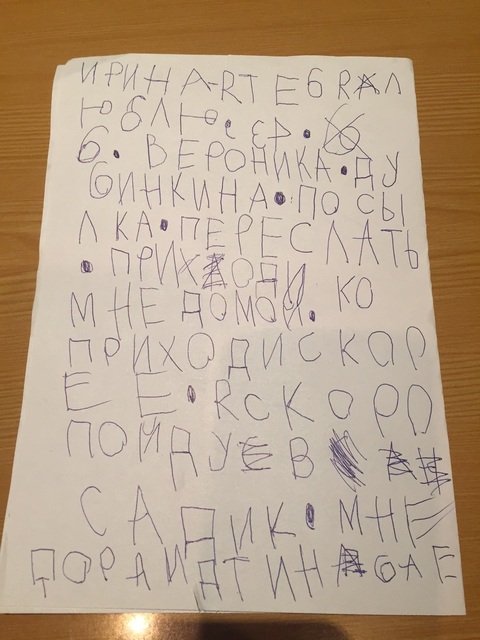 ИРИНА-ЯТЕБЯЛ
ЮБЛЮ. ЕР.
6. ВЕРОНИКА.ДУ
БИНКИНА.ПОСЫ
ЛКА.ПЕРЕСЛАТЬ
.ПРИХОДИ
МНЕДОМОЙ. КО
ПРИХОДИСКОР
ЕЕ.ЯСКОРО
ПОЙДУ В
САДИК.МНЕ
ПОРАИДТИН